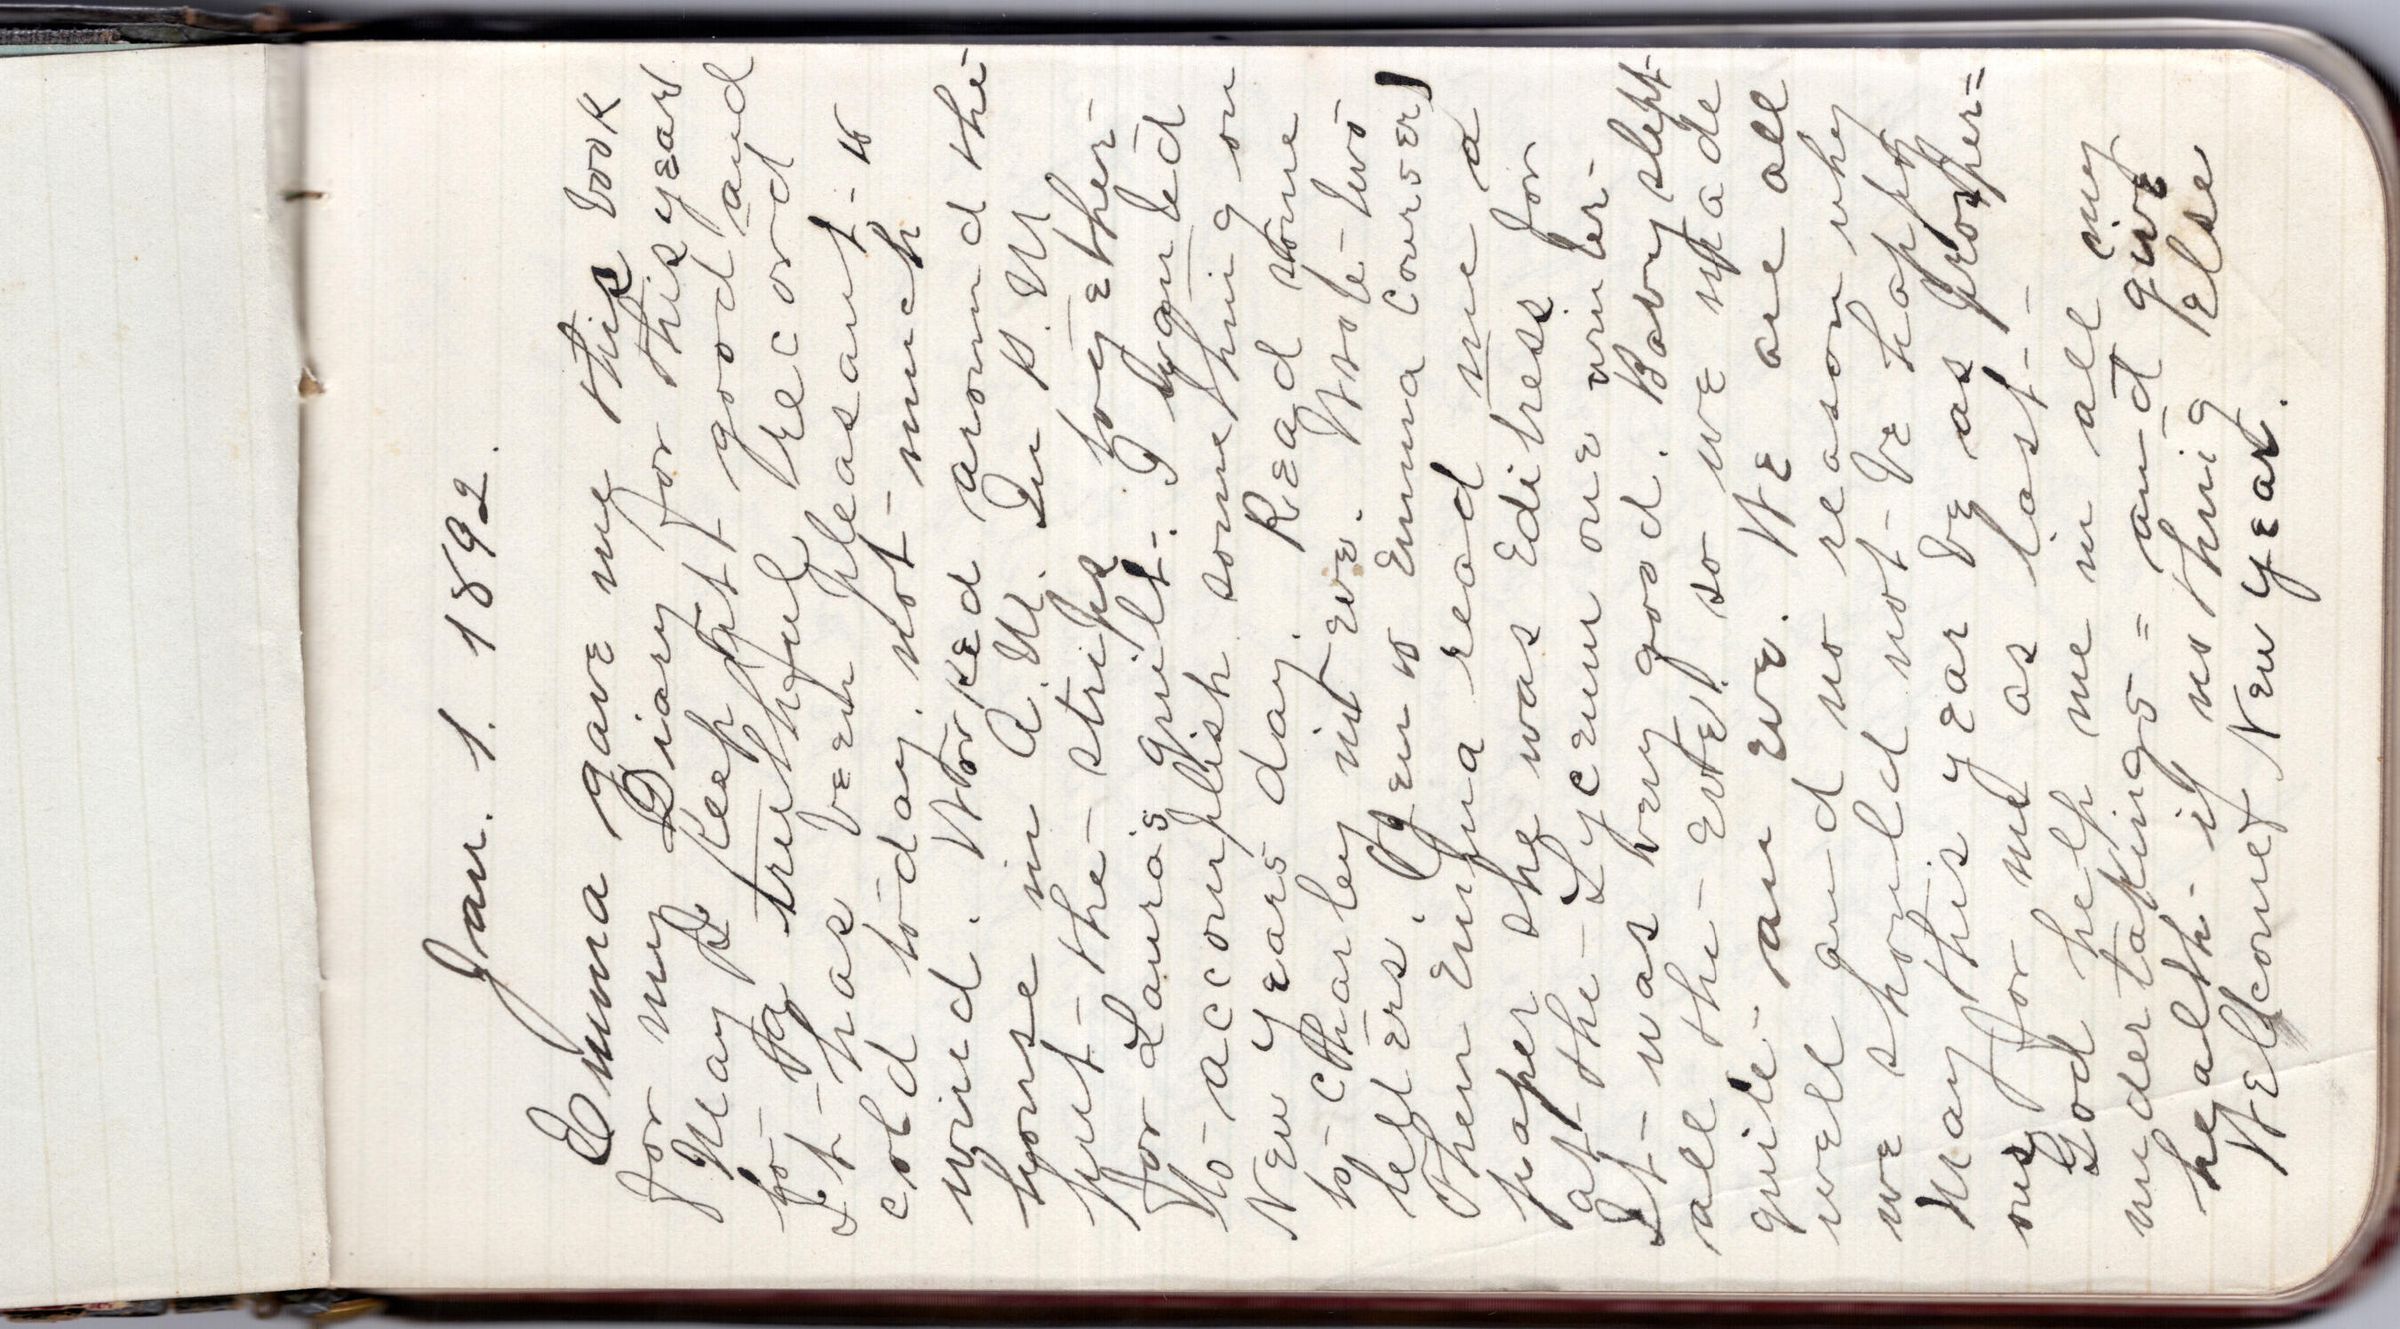 Jan. 1. 1892.
Emma gave me this book
for my Diary for this year
May I keep it good and
for a truthful record
It has been pleasant &
cold to-day. not much
wind. Worked around the
house in A.M. In P.M
put the strips together
for Laura's quilt. I wanted
to accomplish something on
New Years day. Read some
to Charley in eve. Wrote two
letters. (Hen & Emma Conover)
then Emma read me a
paper she was Editress for
at the Lyceum one winter.
It was very good. Baby slept
all the eve. so we made
quite an eve. We are all
well and no reason why
we should not be happy
May this year be as prosper=
ous for me as last
God help me in all my
undertakings = and give
health if nothing else
Welcome New year.